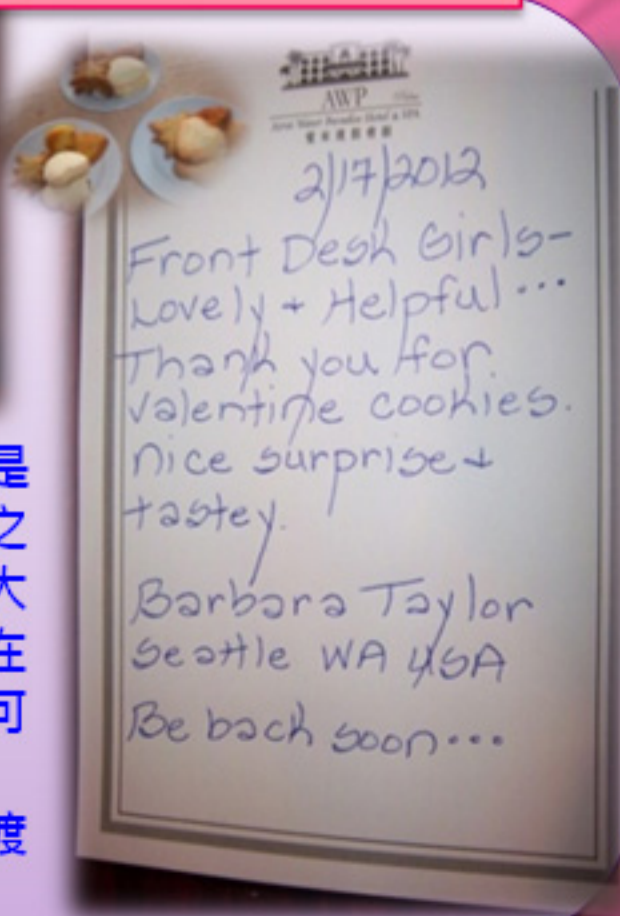 AWP
2/17/2012
Front Desk Girls-
Lovely + Helpful...
Thank you for
Valentine cookies.
nice surprise +
tastey.
Barbara Taylor
Seattle WA USA
Be back soon...
是
之
大
在
可
渡